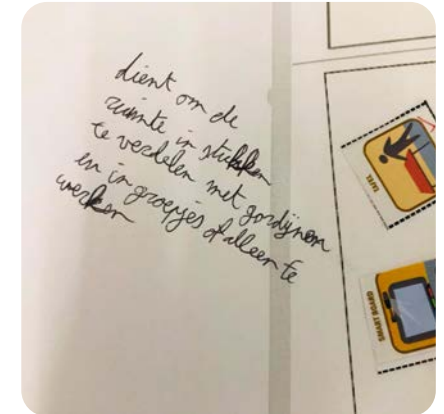 dient om de
ruimte in stukken
te verdelen met gordijnen
en in groepjes of alleen te
werken
TAFEL
SMART BOARD